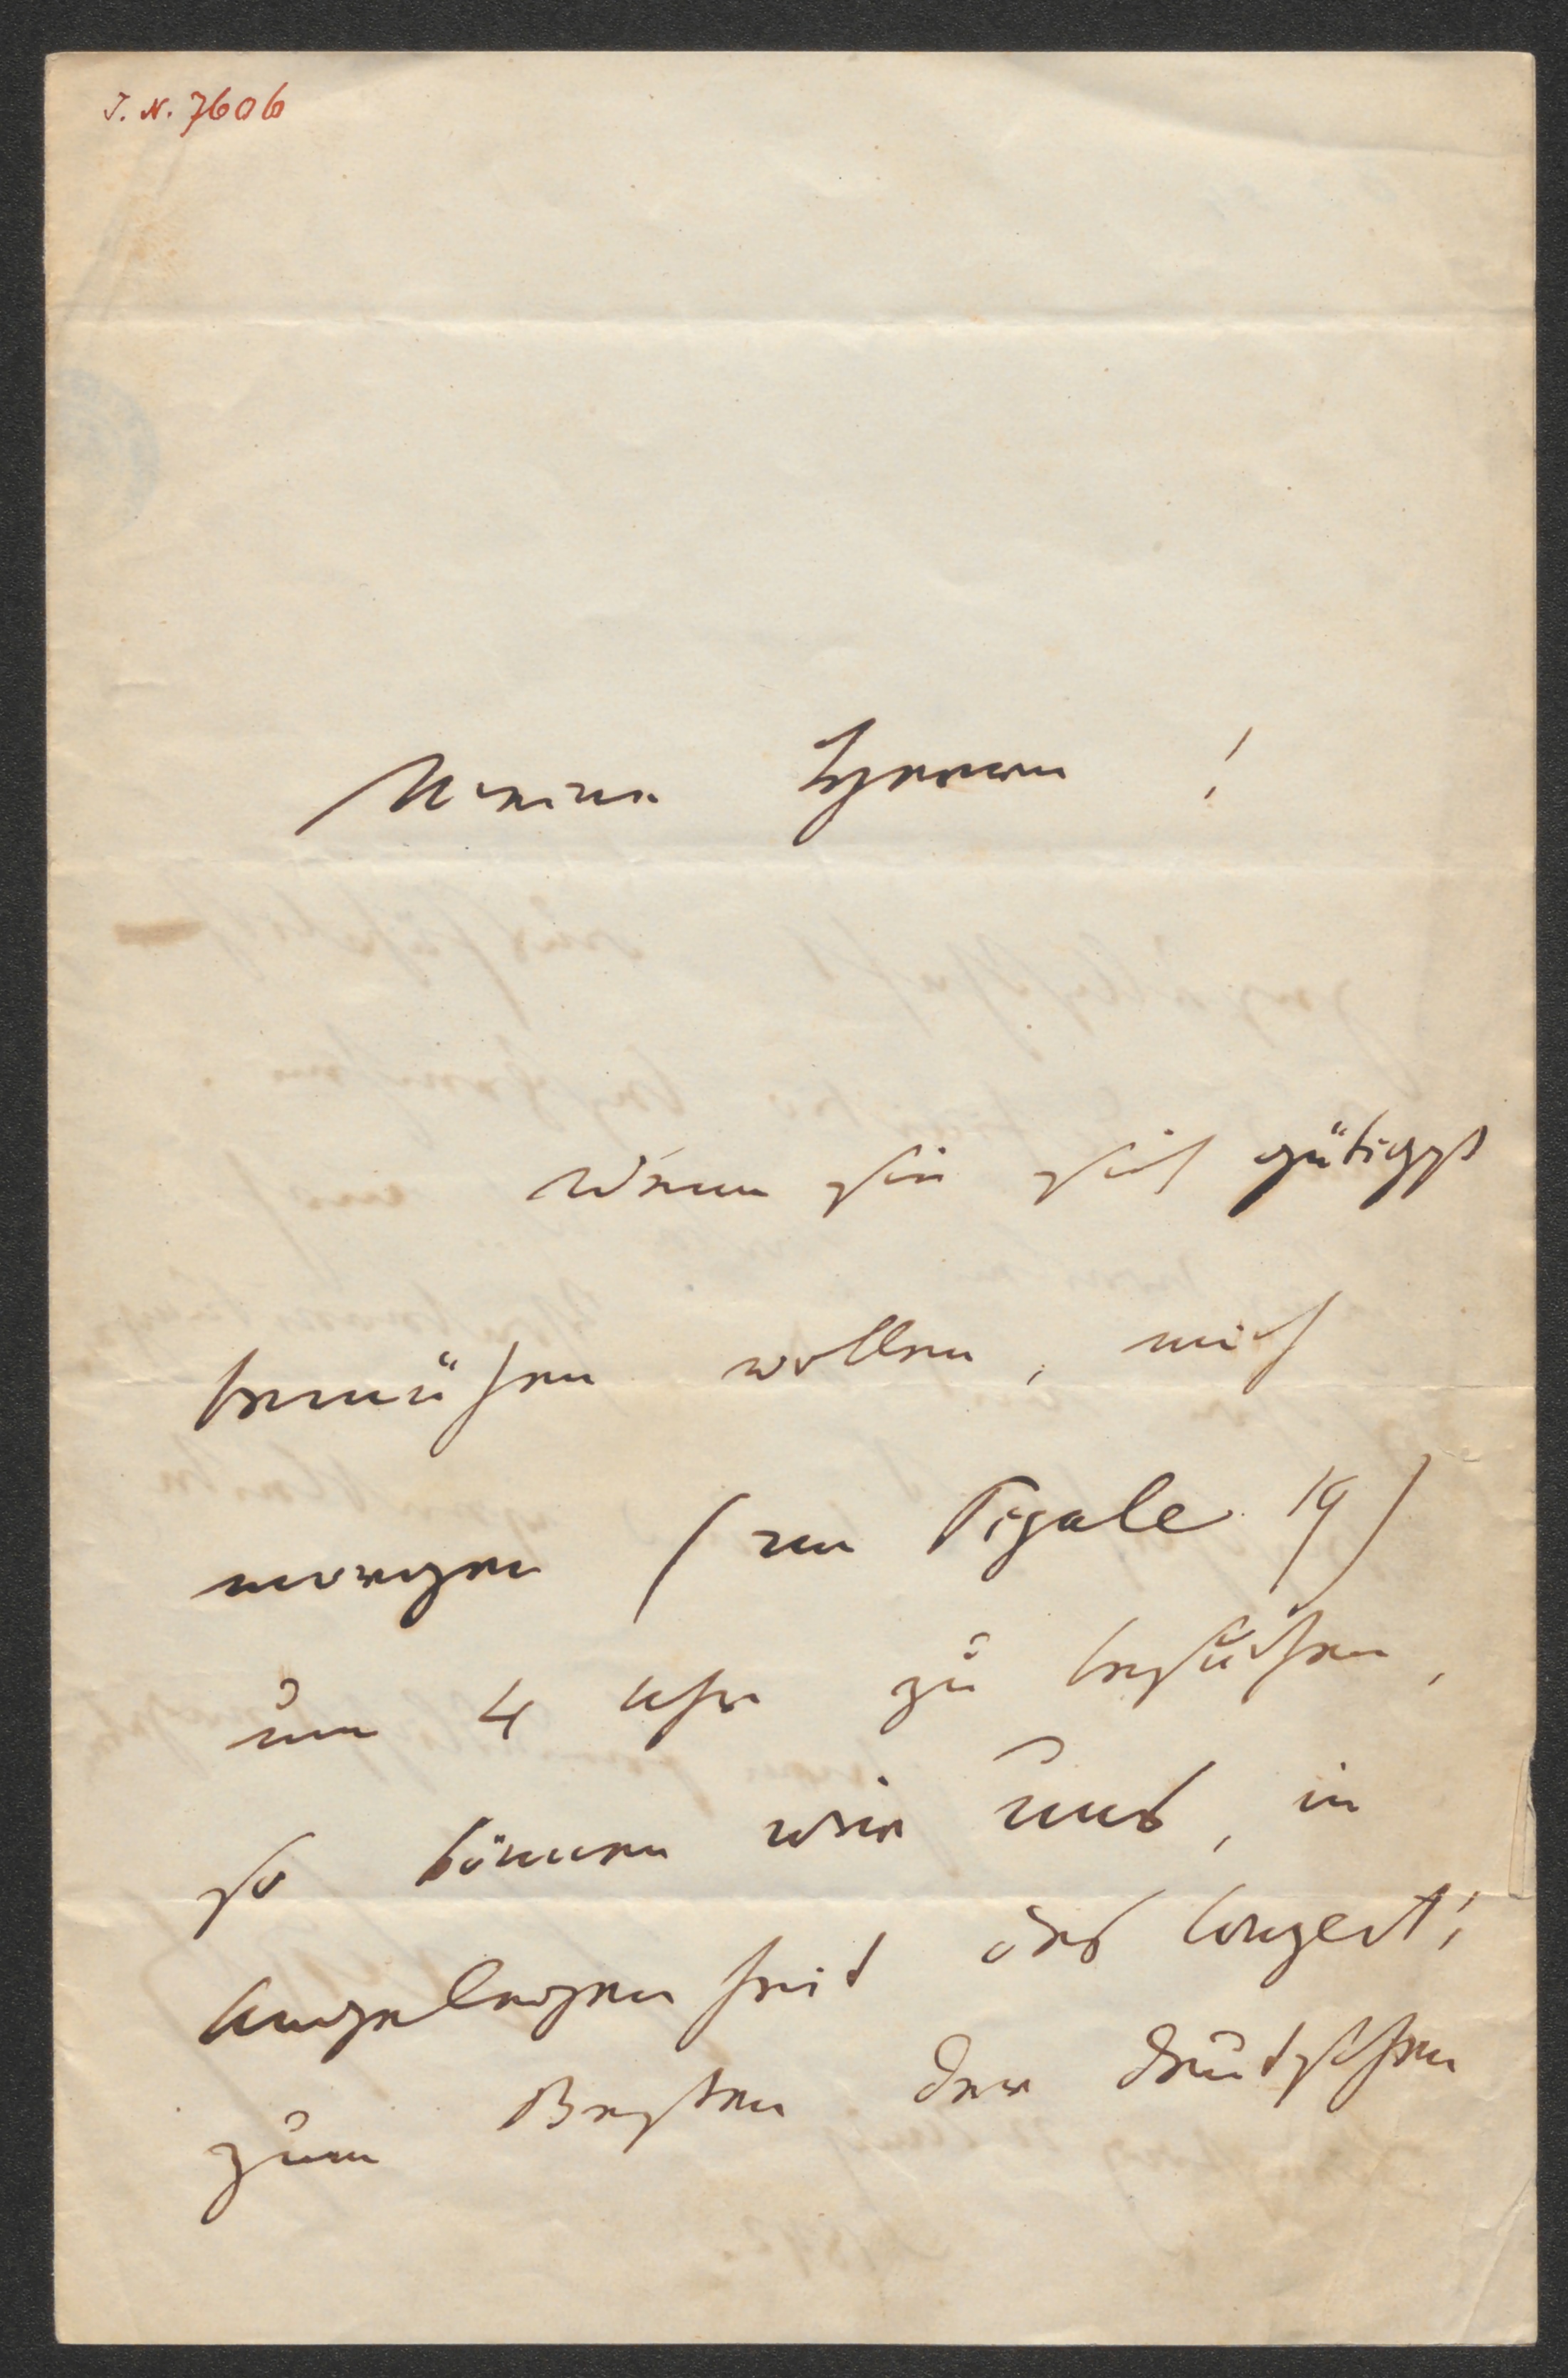 J. N. 7606
Meine Herren !
Wenn sie sich gütigst
bemühen wollen, mich
morgen (rue Pigale 19)
um 4 Uhr zu besuchen,
so können wir uns, in
Angelegenheit des Conzert's
zum Besten der deutschen